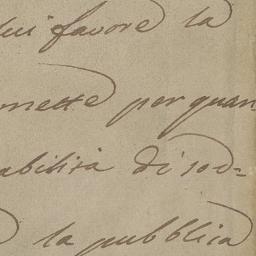 lui favore la
mette per quan
abilità di sod-
la pubblica